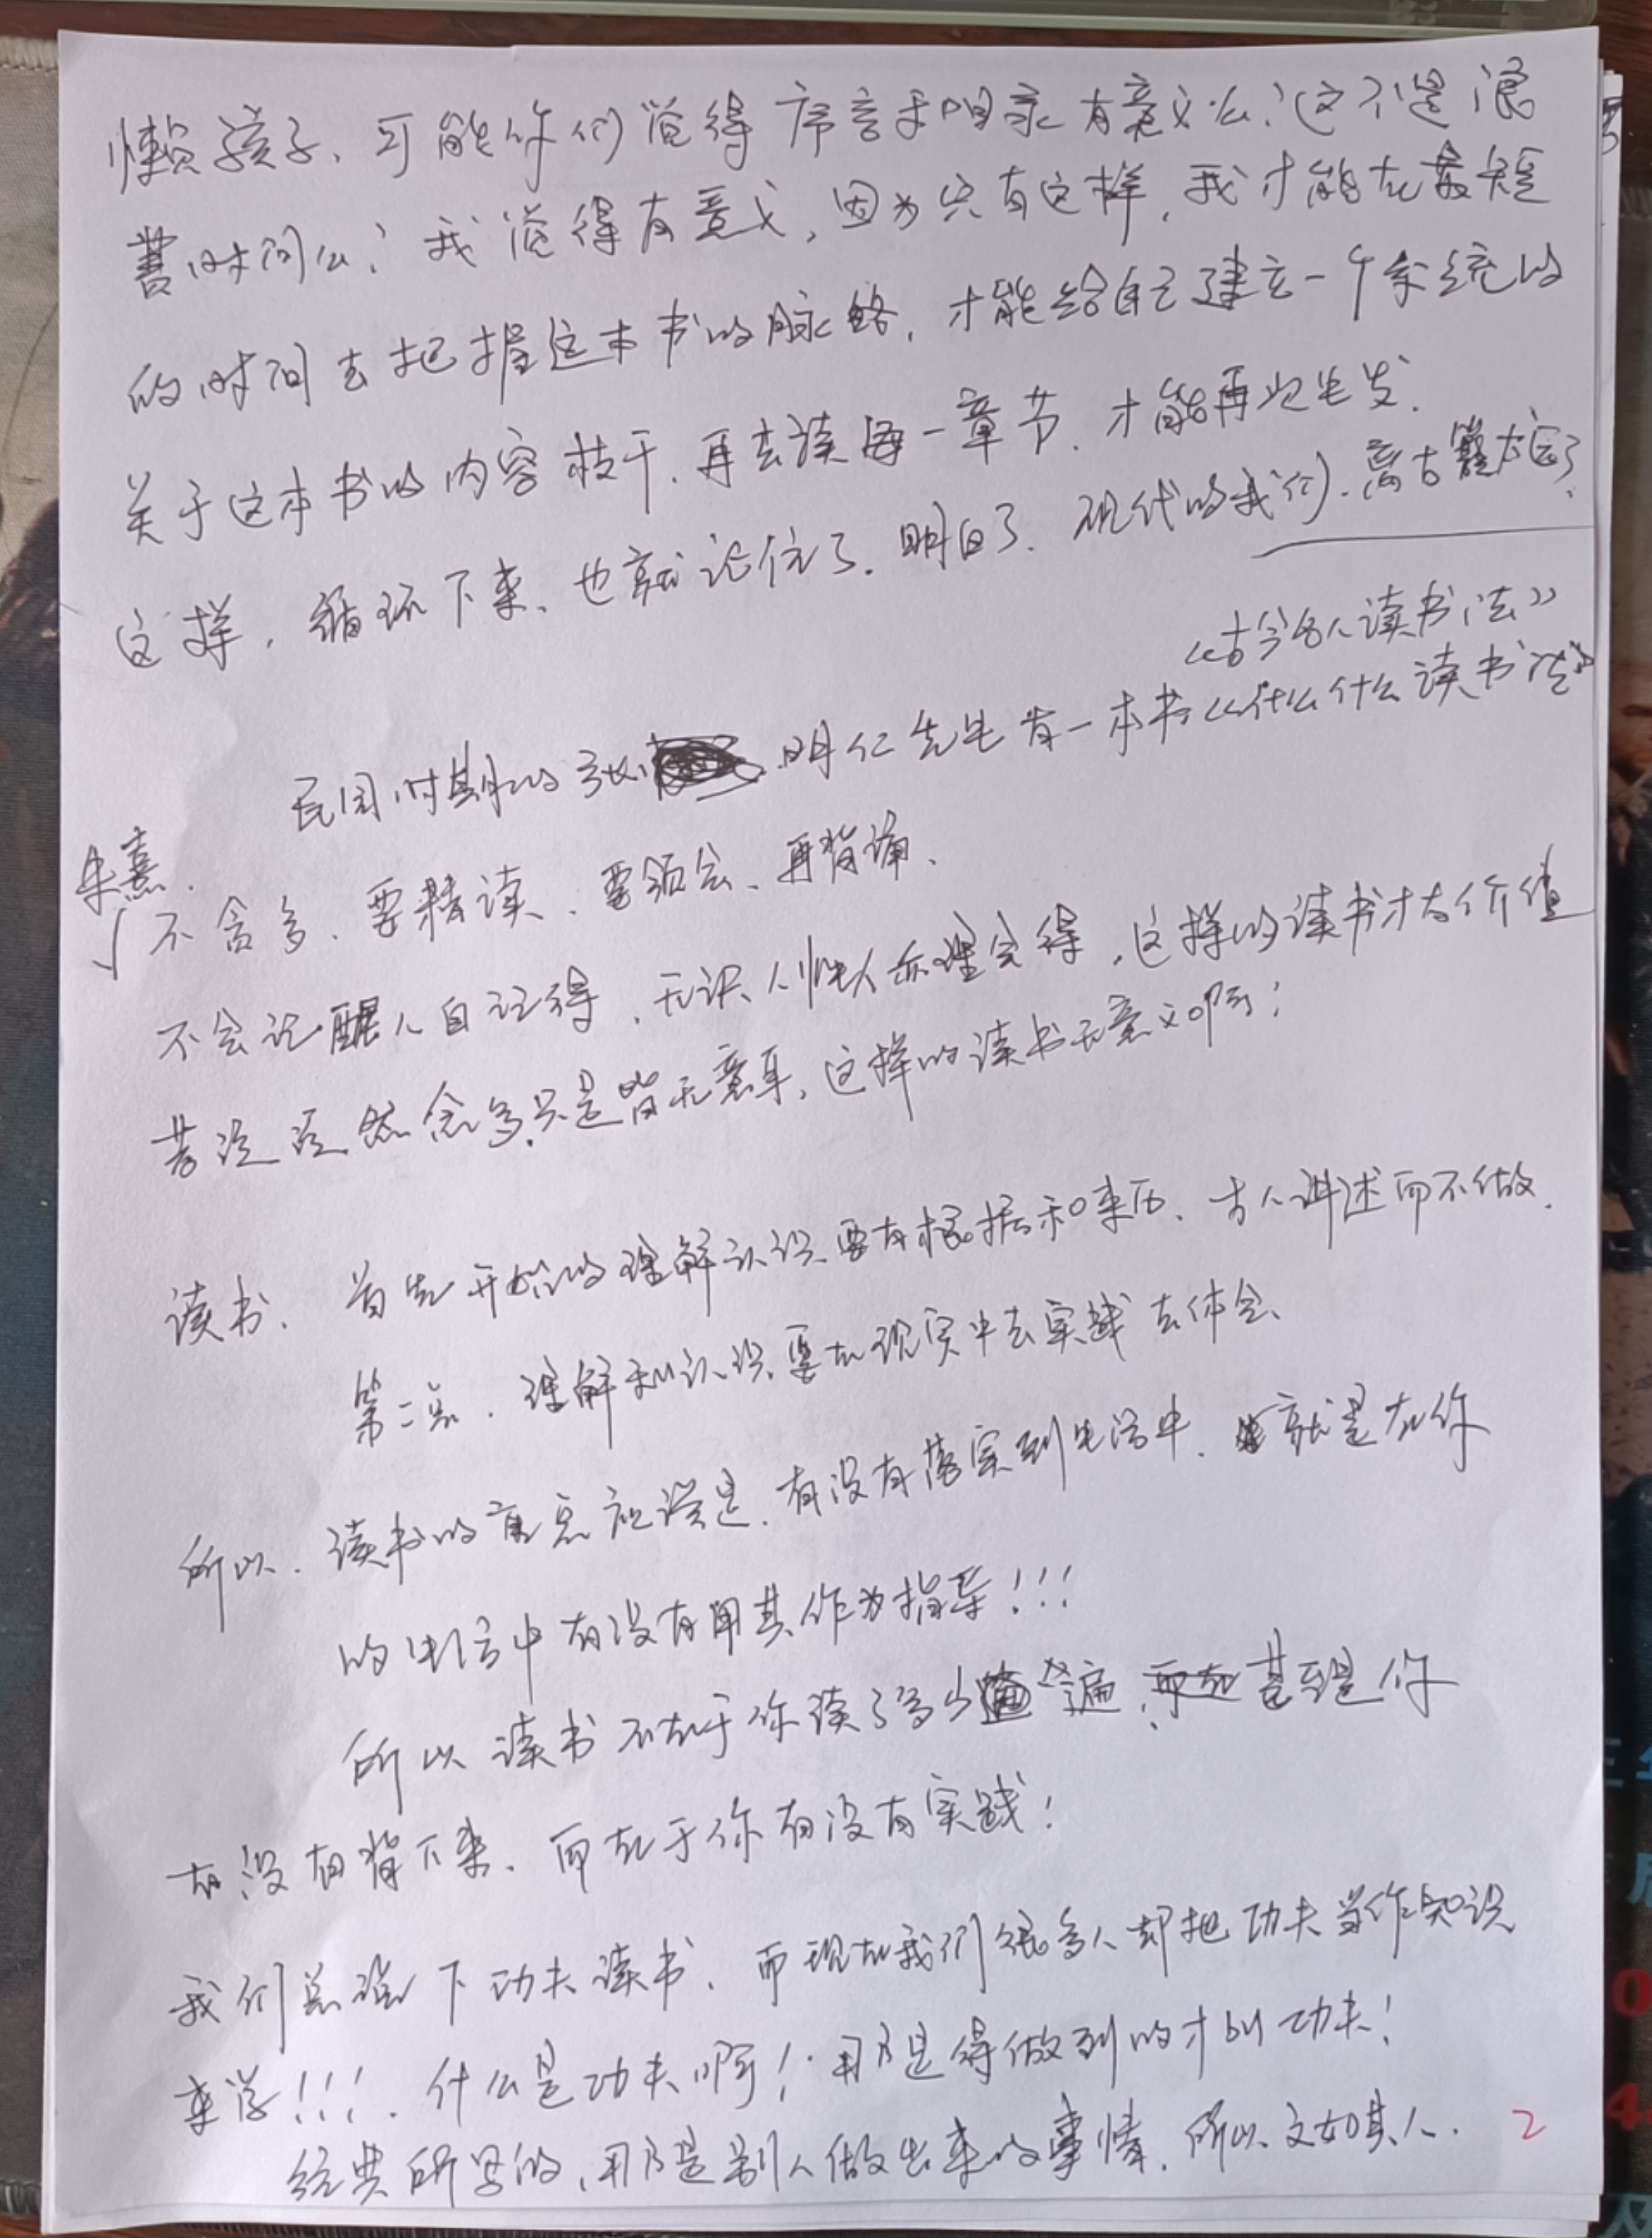 懒孩子、可能你们觉得序言和目录有意义么？这不是浪
费时间么？我觉得有意义，因为只有这样，我才能在最短
的时间去把握这本书的脉络，才能给自己建立一个系统的
关于这本书的内容枝干、再去读每一章节、才能再次生发.
这样，循环下来、也就记住了.明白了.现代的我们、离古籍太远了.
《古今名人读书法》
民国时期的张 明仁先生有一本书《什么什么读书法》
朱熹.
√不贪多、要精读、要领会、再背诵、
不会记 人自记得，无识人性人亦理会得，这样的读书才有价值
若泛泛然念多只是皆无意耳，这样的读书无意义啊！
读书、首先开始的理解认识、要有根据和来历、古人讲述而不做.
第二点、理解和认识、要在现实中去实践去体会、
所以、读书的 应该是、有没有落实到生活中、就是在你
的生活中有没有用其作为指导！！！
所以读书不在于你读了多少遍、而在甚至是你
有没有背下来、而在于你有没有实践！
我们总说下功夫读书、而现在我们很多人却把功夫当作知识
来学！！！. 什么是功夫啊！那是得做到的才叫功夫！
经典所写的，那是别人做出来的事情，所以、文如其人. 2